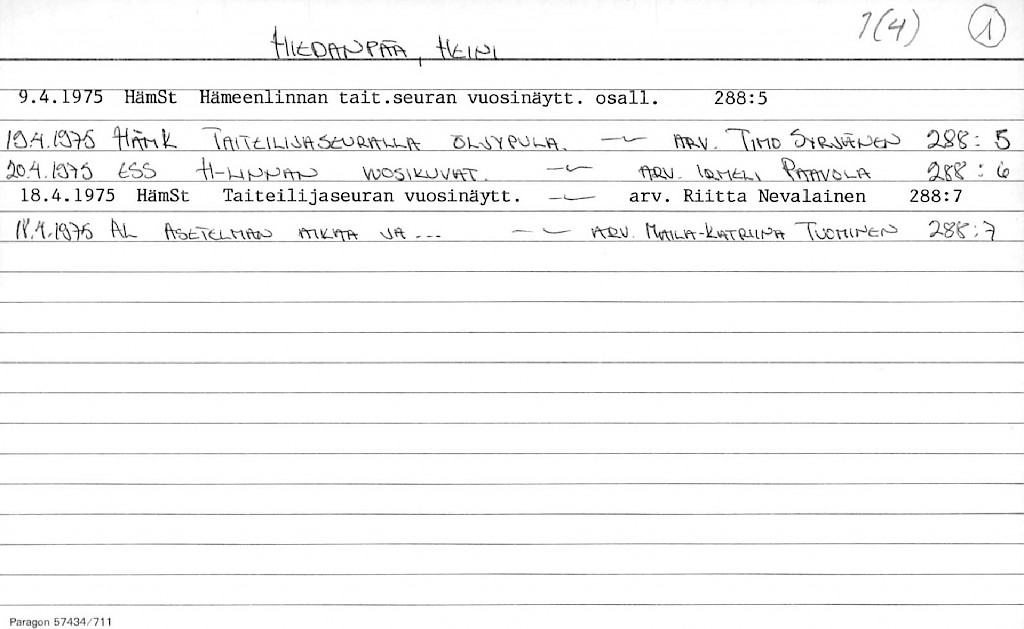 1(4) 1
HIEDANPÄÄ, HEINI
9.4.1975 HämSt Hämeenlinnan tait.seuran vuosinäytt. osall. 288:5
19.4.1975 HÄMK TAITEILIJASEURALLA ÖLJYPULA. —〃— ARV. TIMO SYRJÄNEN 288:5
20.4.1975 ESS H-LINNAN VUOSIKUVAT. —〃— ARV. IRMELI PAAVOLA 288:6
18.4.1975 HämSt Taiteilijaseuran vuosinäytt. —〃— arv. Riitta Nevalainen 288:7
18.4.1975 AL ASETELMAN AIKAA JA ... —〃— ARV. MAILA-KATRIINA TUOMINEN 288:7
Paragon 57434/711